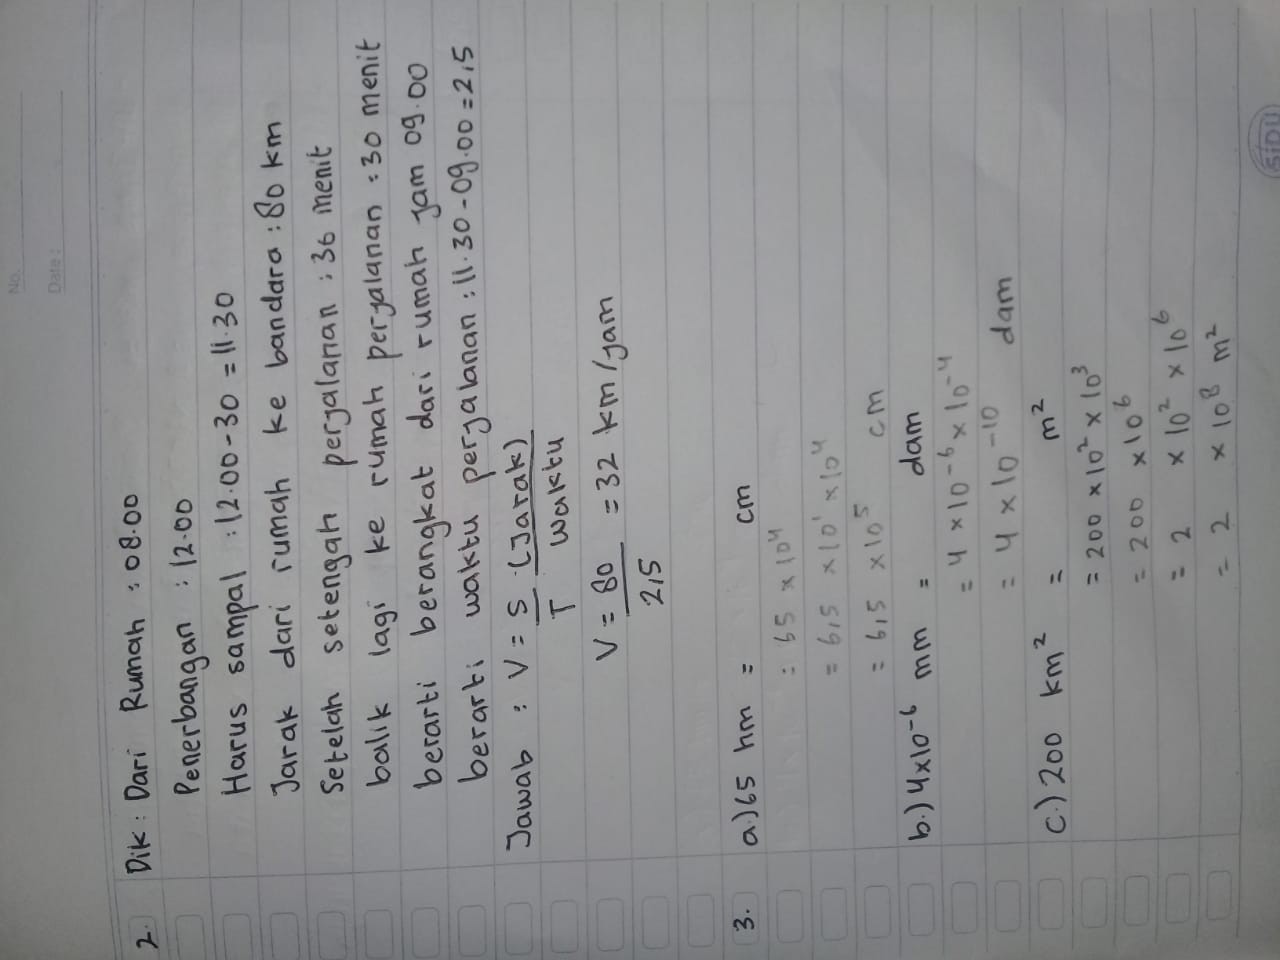 No.
Date :
2. Dik : Dari Rumah : 08.00
Penerbangan : 12.00
Harus sampai : 12.00-30 = 11.30
Jarak dari rumah ke bandara : 80 km
Setelah setengah perjalanan : 36 menit
balik lagi ke rumah perjalanan : 30 menit
berarti berangkat dari rumah jam 09.00
berarti waktu perjalanan : 11.30-09.00 = 2,5
Jawab : V = S (Jarak)
T waktu
V = 80 = 32 km/jam
2,5
3. a.) 65 hm = cm
= 65 x 10⁴
= 6,5 x 10¹ x 10⁴
= 6,5 x 10⁵ cm
b.) 4x10⁻⁶ mm = dam
= 4 x 10⁻⁶ x 10⁻⁴
= 4 x 10⁻¹⁰ dam
c.) 200 km² = m²
= 200 x 10² x 10³
= 200 x 10⁶
= 2 x 10² x 10⁶
= 2 x 10⁸ m²
SIDU